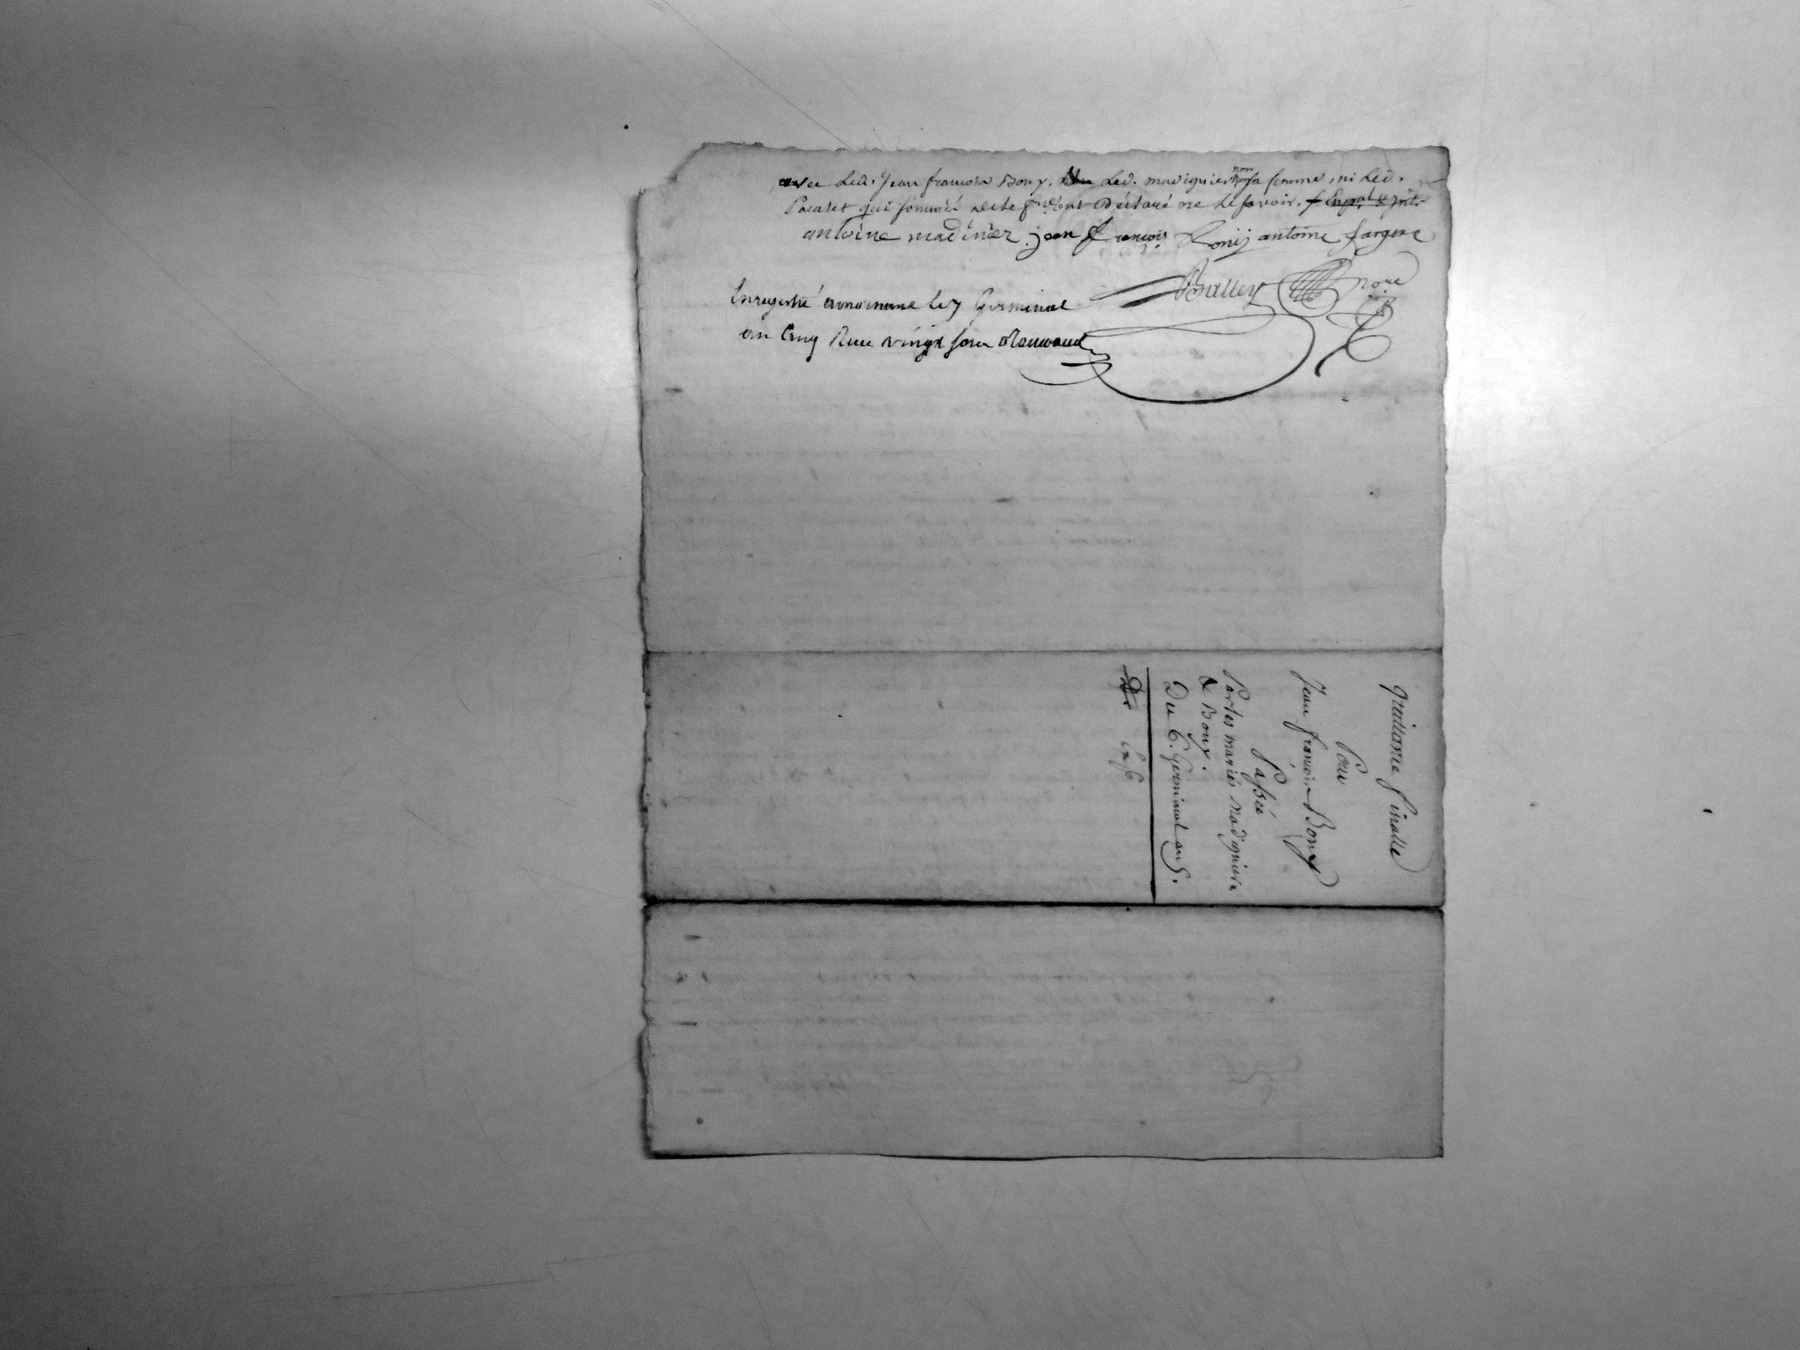 avec led. Jean françois Bouy. led. madignier non sa femme, ni led.
Pacalet qui sommés de le fre. ont déclaré ne le savoir.
antoine madinier jean françois Bouij antoine fargere
Balley nore
Enregistré le 7 Germinal
an Cinq Reçu vingt sous
quittance finalle
Pour
Jean françois Bouy
Passée
Par les mariés Madignier
& Bouy.
Du 6. Germinal an 5.